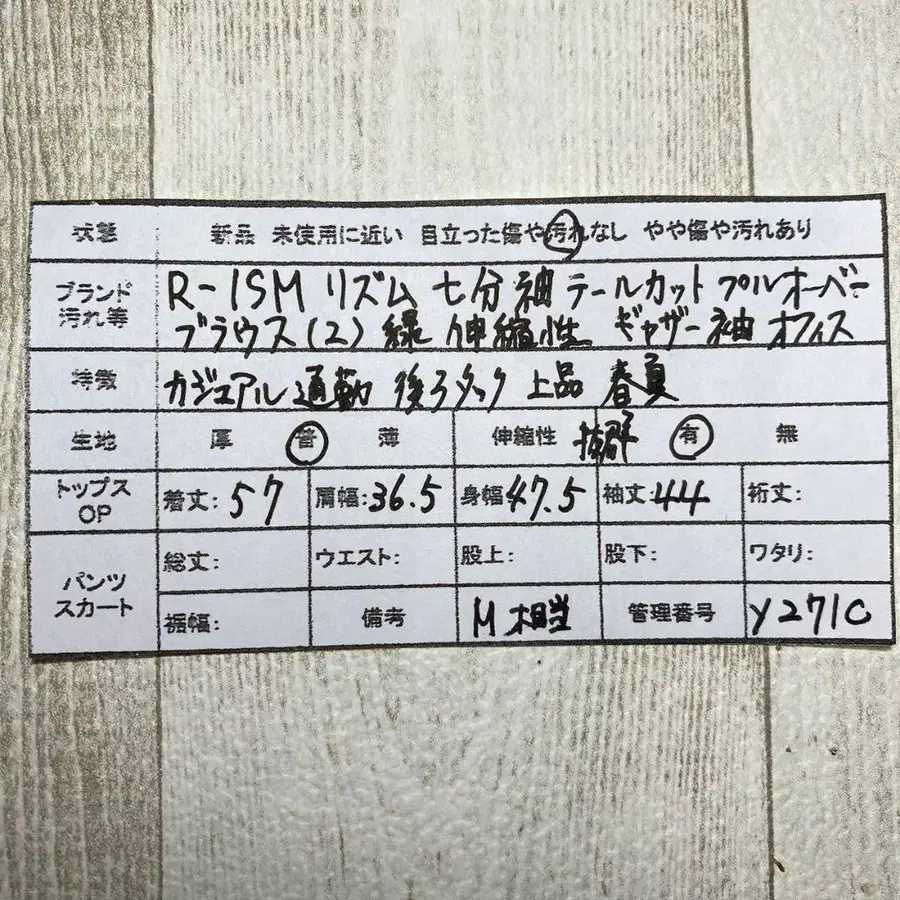 状態 新品 未使用に近い 目立った傷や汚れなし やや傷や汚れあり
ブランド 汚れ等 R-ISM リズム 七分袖 テールカット プルオーバー
ブラウス(2) 緑 伸縮性 ギャザー袖 オフィス
特徴 カジュアル 通勤 後ろタック 上品 春夏
生地 厚 普 薄 伸縮性 抜群 有 無
トップス OP 着丈:57 肩幅:36.5 身幅47.5 袖丈:44 裄丈:
パンツ スカート 総丈: ウエスト: 股上: 股下: ワタリ:
裾幅: 備考 M相当 管理番号 Y271C